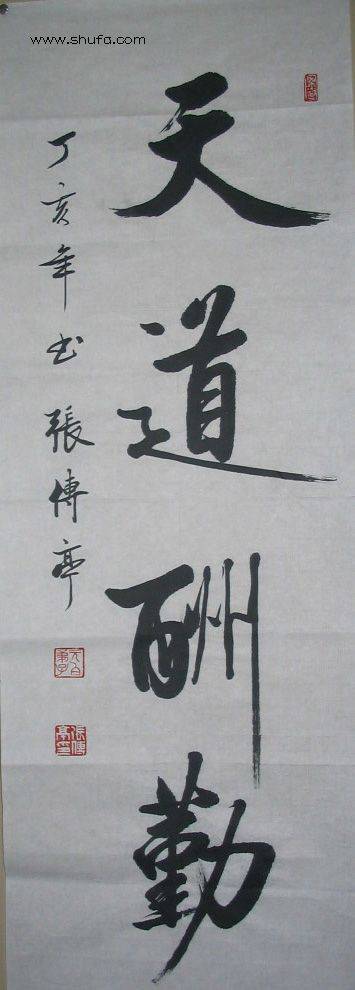 www.shufa.com
天道酬勤
丁亥年书張傳亭
張傳
亭印